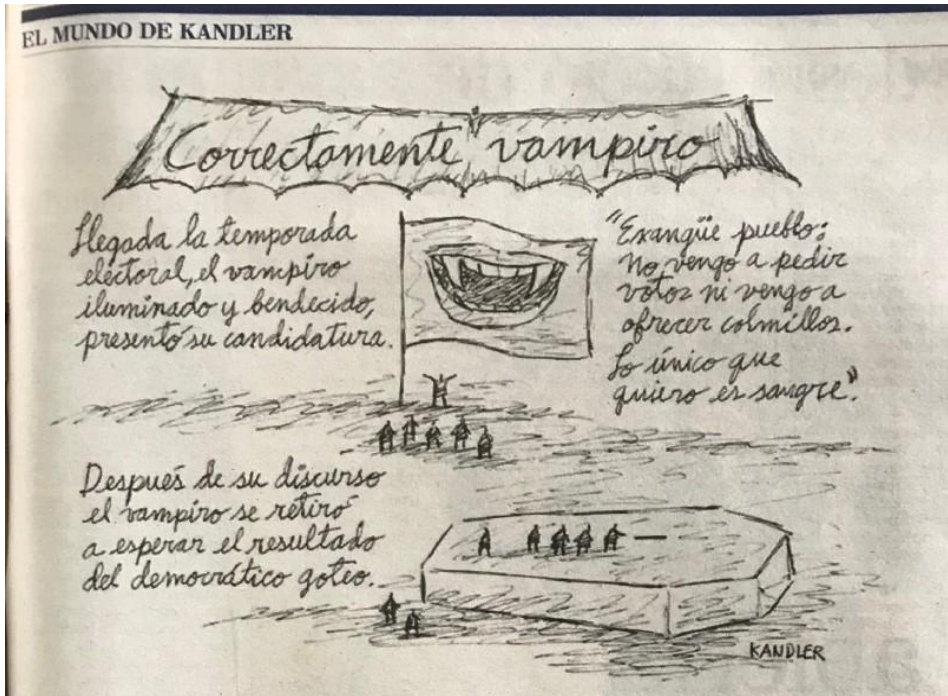 EL MUNDO DE KANDLER
Correctamente vampiro
Llegada la temporada
electoral, el vampiro
iluminado y bendecido,
presentó su candidatura.
"Exangüe pueblo:
No vengo a pedir
votos ni vengo a
ofrecer colmillos.
Lo único que
quiero es sangre".
Después de su discurso
el vampiro se retiró
a esperar el resultado
del democrático goteo.
KANDLER